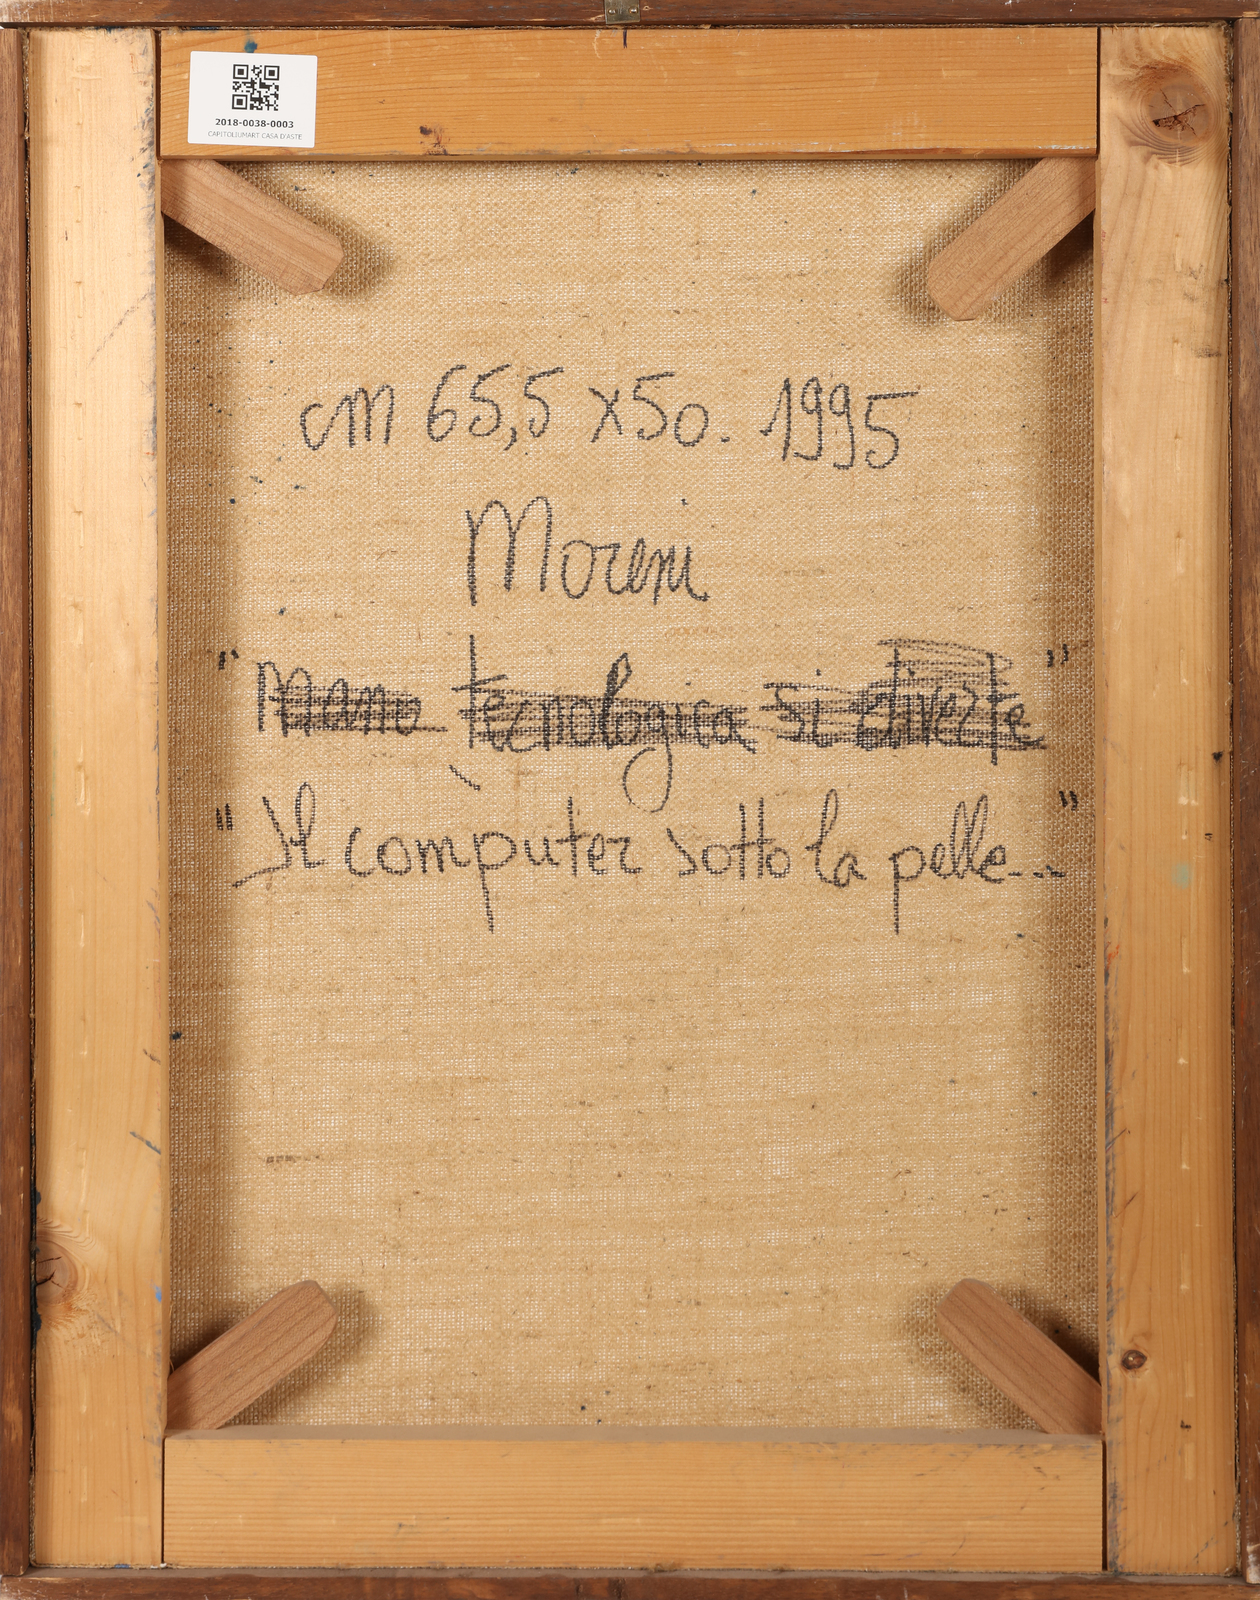 2018-0038-0003
CAPITOLIUMART CASA D'ASTE
cm 65,5 x 50. 1995
Moreni
"Mano tecnologica si diverte"
"Il computer sotto la pelle..."